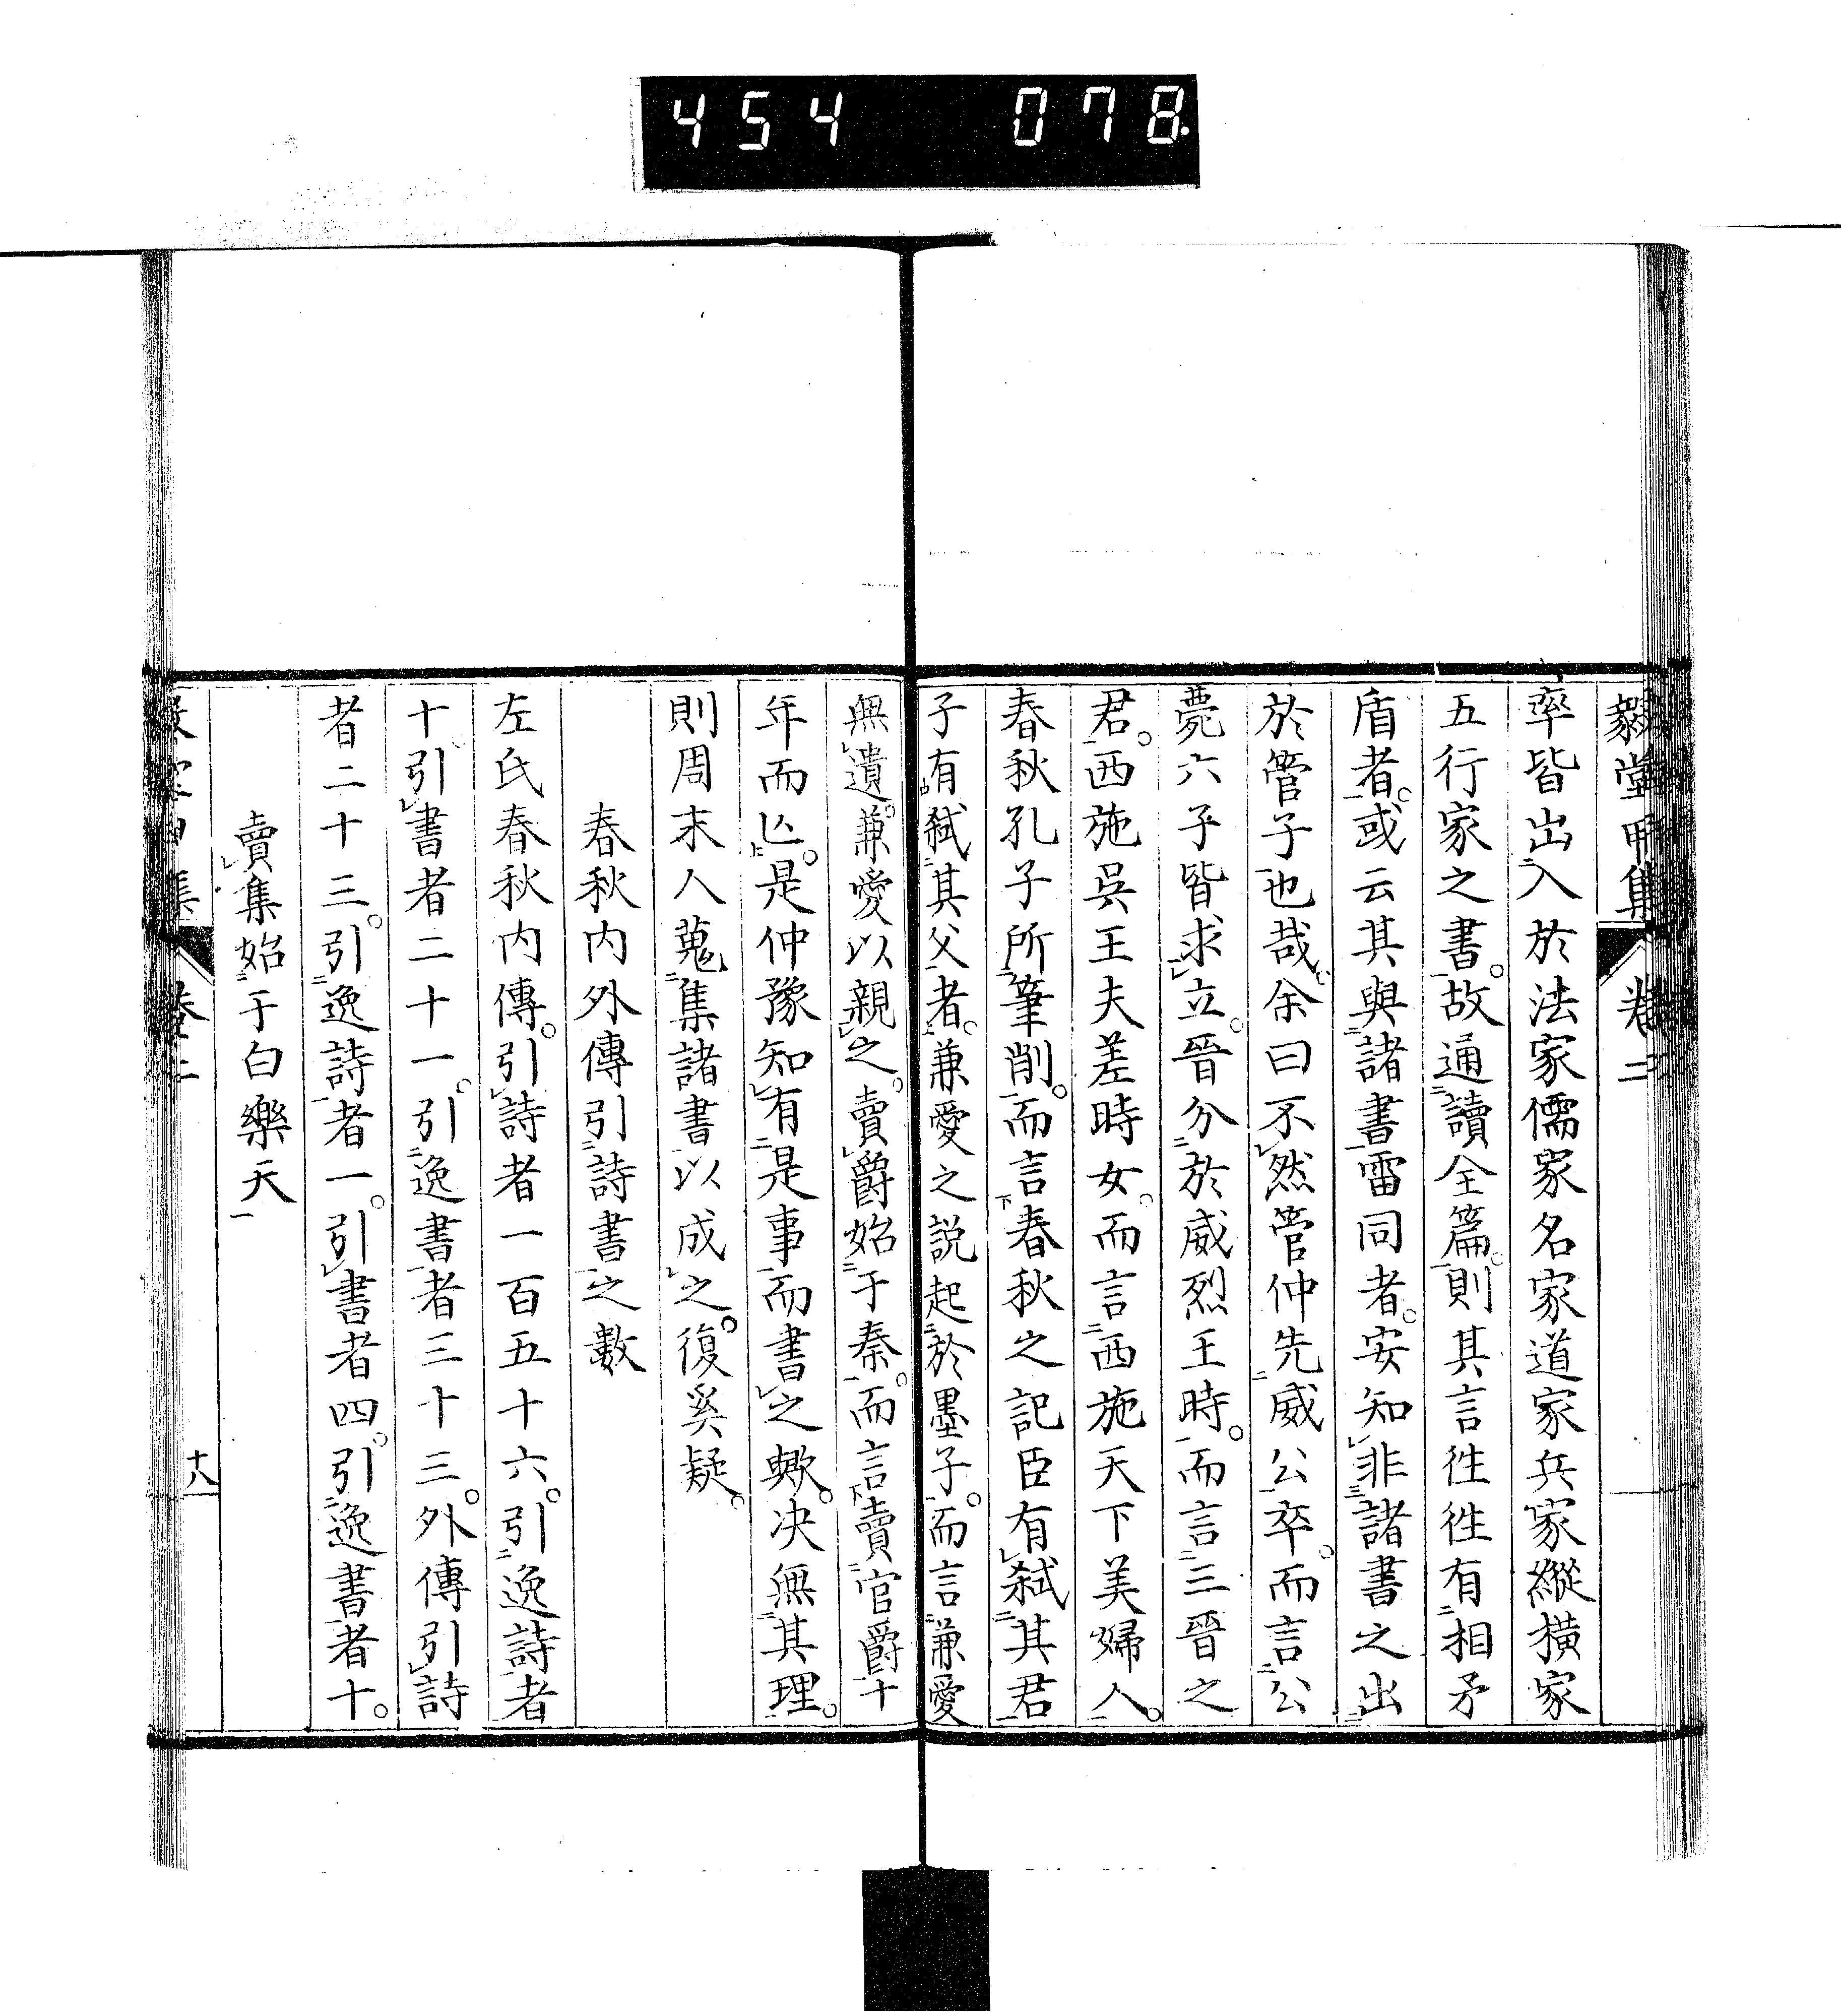 454 078
毅堂甲集 卷二
率皆出入於法家儒家名家道家兵家縱横家
五行家之書。故通讀全篇。則其言徃徃有相矛
盾者。或云其與諸書雷同者。安知非諸書之出
於管子也哉。余曰不然管仲先威公卒。而言公
薨六子皆求立。晉分於威烈王時。而言三晉之
君。西施呉王夫差時女。而言西施天下美婦人。
春秋孔子所筆削。而言春秋之記臣有弑其君
子有弑其父者。兼愛之説起於墨子。而言兼愛
無遺。兼愛以親之。賣爵始于秦。而言賣官爵十
年而亾。是仲豫知有是事而書之歟。决無其理。
則周末人蒐集諸書以成之。復奚疑。
春秋内外傳引詩書之數
左氏春秋内傳。引詩者一百五十六。引逸詩者
十引書者二十一。引逸書者三十三。外傳引詩
者二十三。引逸詩者一。引書者四。引逸書者十。
賣集始于白樂天
十八